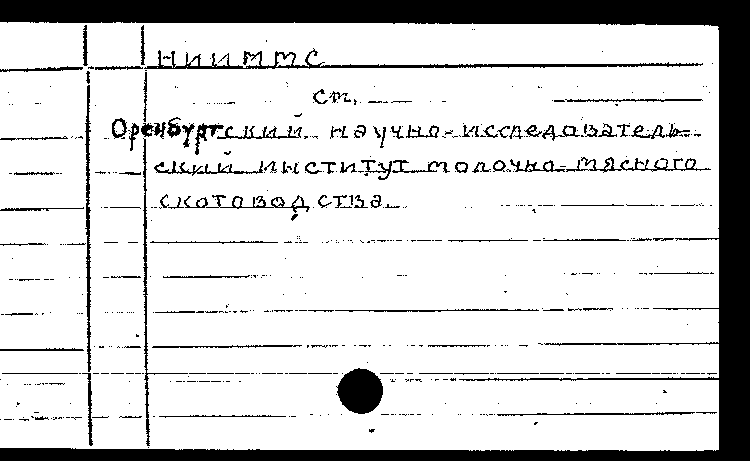 НИИММС
ст.
Оренбургский научно-исследователь-
ский институт молочно-мясного
скотоводства.